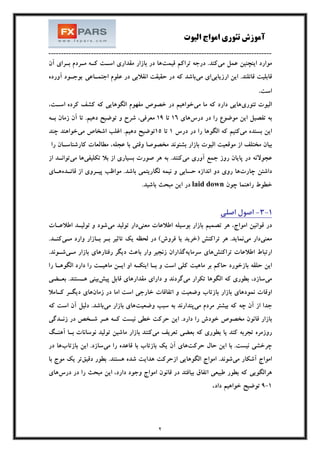 FXPARS
WWW.FXPARS.COM
آموزش تئوری امواج الیوت
موارد اینچنین عمل می‌کند. درجه تراکم قیمت‌ها در بازار مقداری است که مردم برای آن
قابلیت قائلند. این ارزیابی‌ای می‌باشد که در حقیقت انقلابی در علوم اجتماعی بوجود آورده
است.
الیوت تئوری‌هایی دارد که ما می‌خواهیم در خصوص مفهوم الگوهایی که کشف کرده است،
به تفصیل این موضوع را در درس‌های ۱۶ تا ۱۹ معرفی، شرح و توضیح دهیم. تا آن زمان به
این بسنده می‌کنیم که الگوها را در درس ۱ تا ۱۵ توضیح دهیم. اغلب اشخاص می‌خواهند چند
بیان مختلف از موقعیت الیوت بازار بشنوند مخصوصا وقتی با عجله، مطالعات کارشناسان را
عجولانه در پایان روز جمع آوری می‌کنند. به هر صورت بسیاری از بلا تکلیفی‌ها می‌تواند از
داشتن چارت‌ها روی دو اندازه حسابی و نیمه لگاریتمی باشد. مواظب پیروی از قائده‌های
خطوط راهنما چون laid down در این مبحث باشید.
۳-۱- اصول اصلی
در قوانین امواج، هر تصمیم بازار بوسیله اطلاعات معنی‌دار تولید می‌شود و تولید اطلاعات
معنی‌دار می‌نماید. هر تراکنش (خرید یا فروش) در لحظه یک تاثیر بر بازار وارد می‌کند.
ارتباط اطلاعات تراکنش‌های سرمایه‌گذاران زنجیر وار باعث دیگر رفتارهای بازار می‌شوند.
این حلقه بازخوره حاکم بر ماهیت کلی است و با اینکه او این ماهیت را دارد الگوها را
می‌سازد، بطوری که الگوها تکرار می‌گردند و دارای مقدارهای قابل پیش‌بینی هستند. بعضی
اوقات نمودهای بازار بازتاب وضعیت و اتفاقات خارجی است اما در زمان‌های دیگر کاملا
جدا از آن چه که بیشتر مردم می‌پندارند به سبب وضعیت‌های بازار می‌باشد. دلیل آن است که
بازار قانون مخصوص خودش را دارد. این حرکت خطی نیست که هر شخص در زندگی
روزمره تجربه کند یا بطوری که بعضی تعریف می‌کنند بازار ماشین تولید نوسانات با آهنگ
چرخشی نیست. با این حال حرکت‌های آن یک بازتاب با قاعده را می‌سازد. این بازتاب‌ها در
امواج آشکار می‌شوند. امواج الگوهایی ازحرکت هدایت شده هستند. بطور دقیق‌تر یک موج با
هرالگویی که بطور طبیعی اتفاق بیافتد در قانون امواج وجود دارد، این مبحث را در درس‌های
۱-۹ توضیح خواهیم داد.
۹